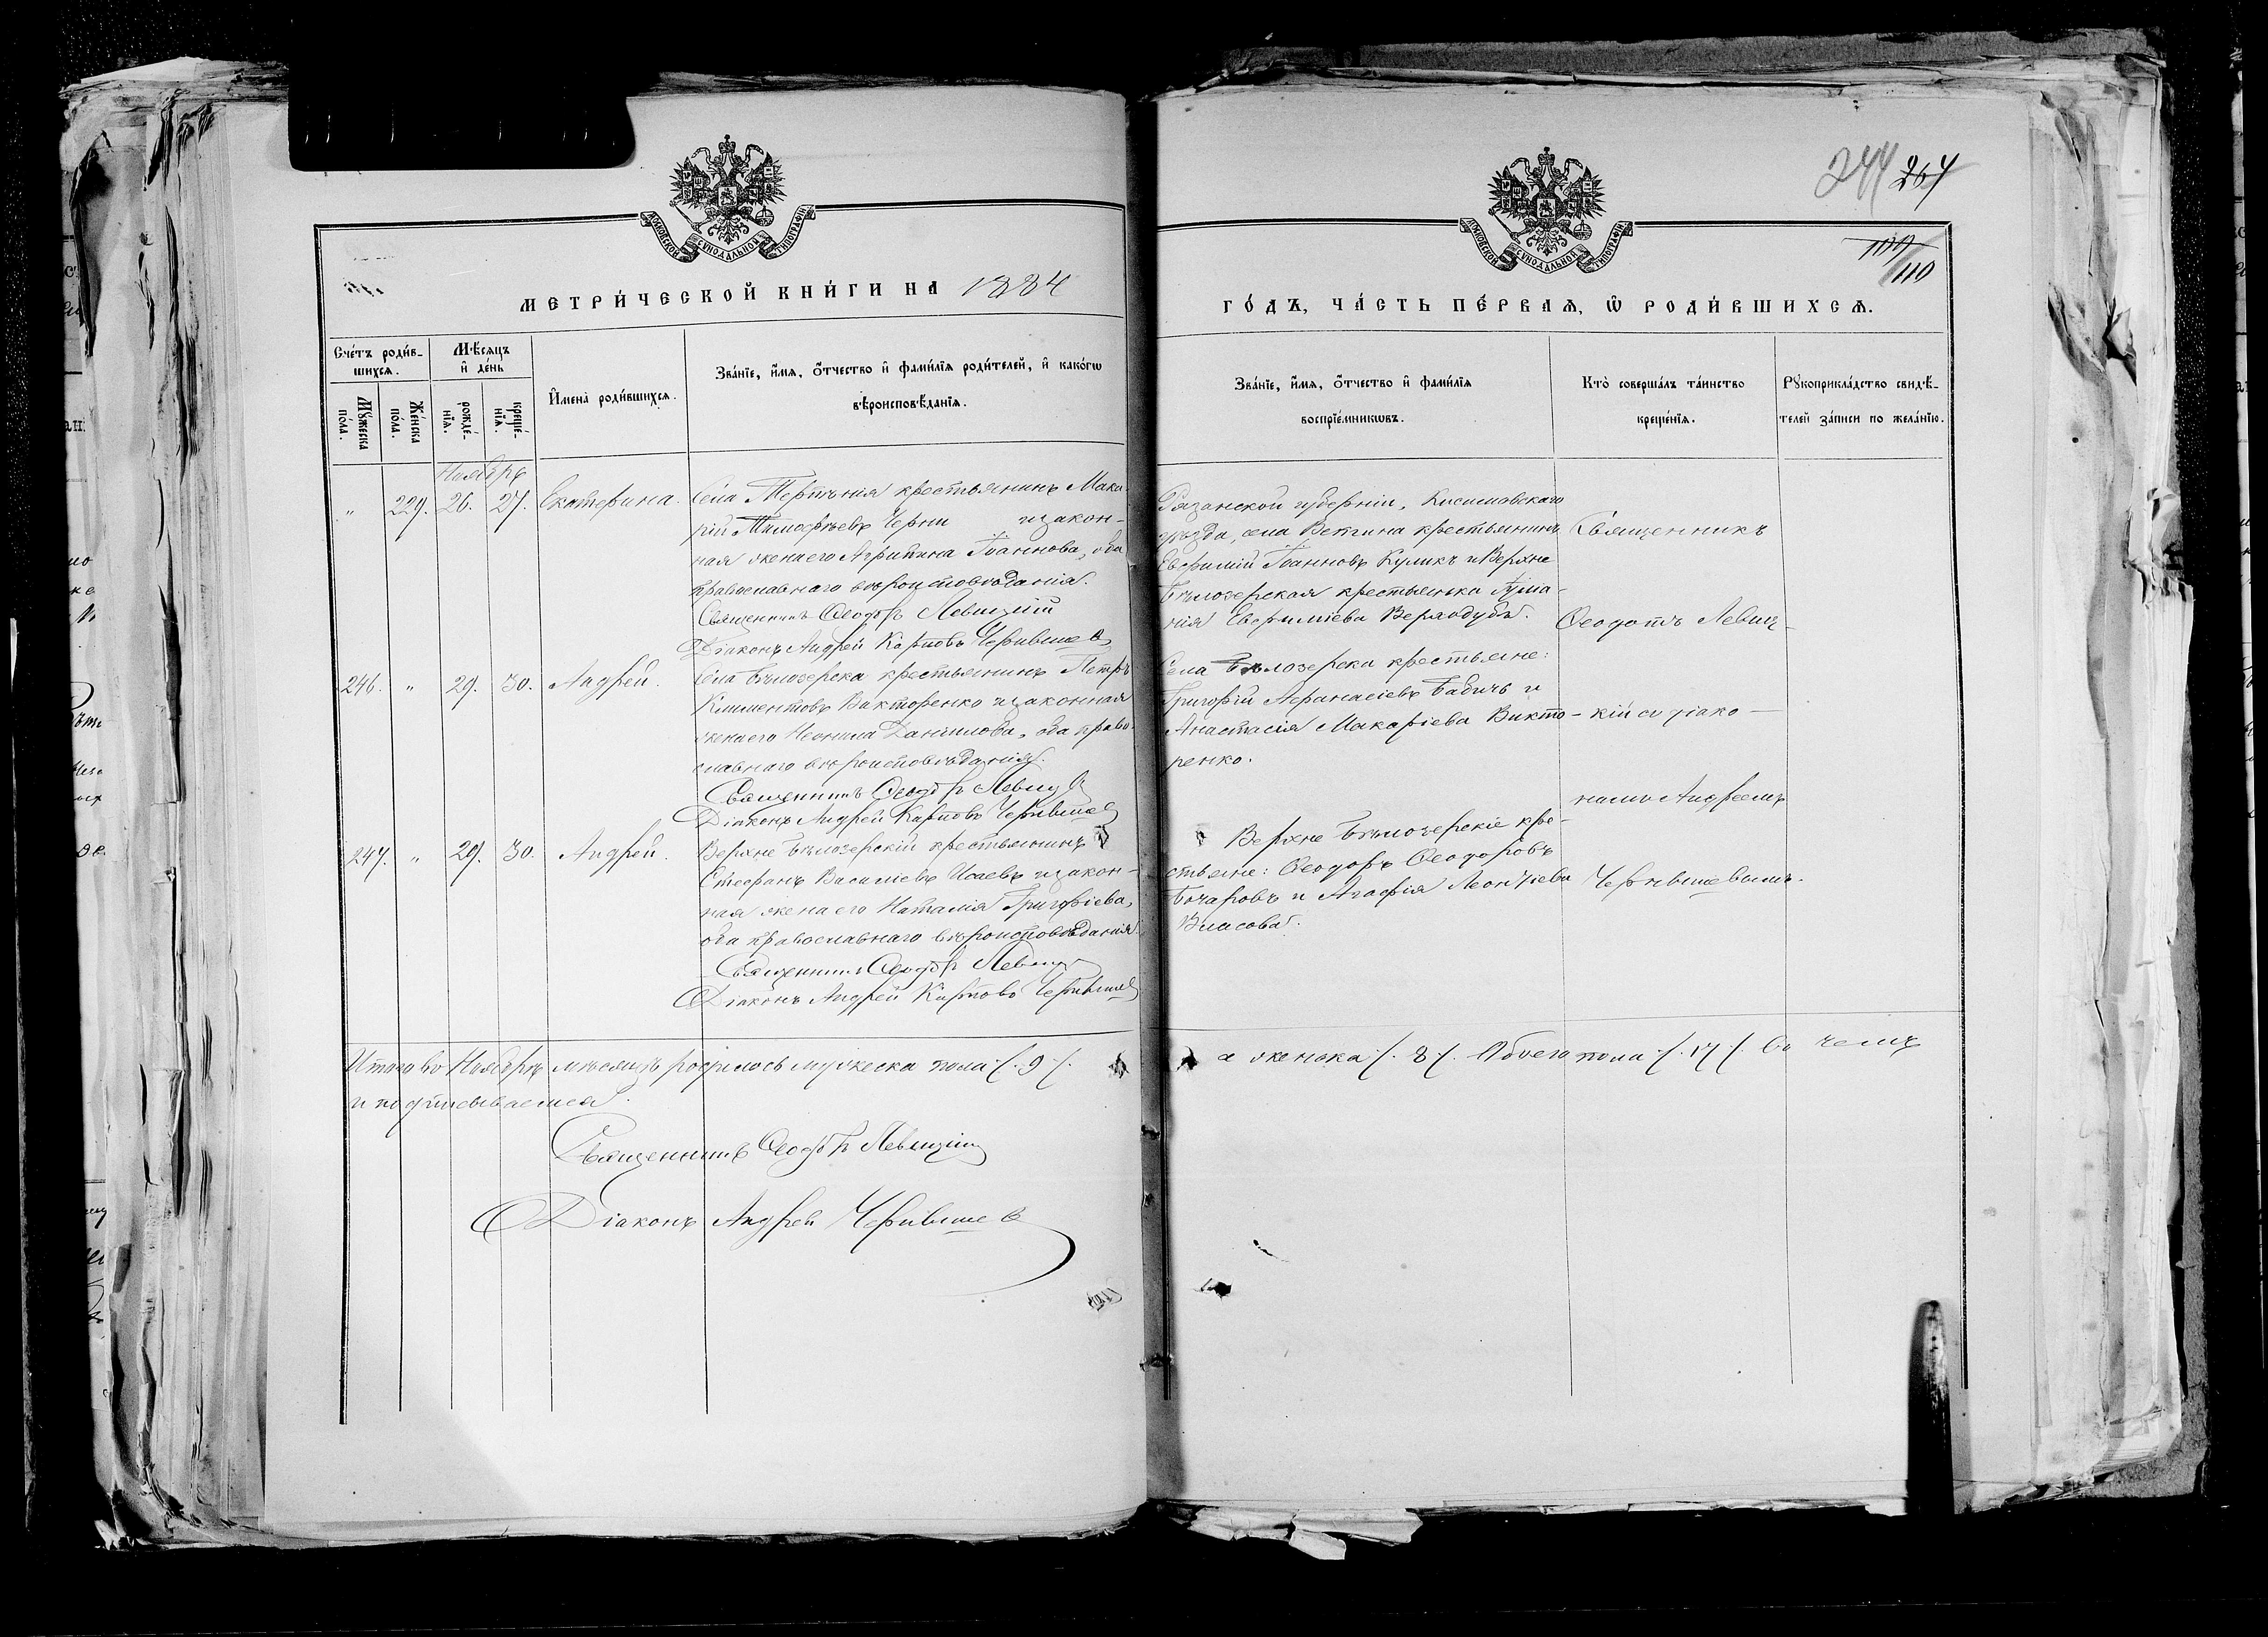 244 264
109
110
МОСКОВСКОЙ СУНОДАЛЬНОЙ ТИПОГРАФІИ
МЕТРИ́ЧЕСКОЙ КНИ́ГИ НА 1884
МОСКОВСКОЙ СУНОДАЛЬНОЙ ТИПОГРАФІИ
ГО́ДЪ, ЧА́СТЬ ПЕ́РВАѦ, Ѽ РОДИ́ВШИХСѦ.
Сче́тъ роди́в-
шихсѧ.
Мꙋ́жеска
по́ла.
Же́нска
по́ла.
Мѣ́сѧцъ
и҆ де́нь
рожде́-
нїѧ.
креще́-
нїѧ.
И҆мена̀ роди́вшихсѧ.
Зва́нїе, и҆́мѧ, ѻ҆́тчество и҆ фами́лїѧ роди́телей, и҆ како́гѡ
вѣроисповѣ́данїѧ.
Зва́нїе, и҆́мѧ, ѻ҆́тчество и҆ фами́лїѧ
воспрїе́мникѡвъ.
Кто̀ соверша́лъ та́инство
креще́нїѧ.
Рꙋкоприкла́дство свидѣ́-
телей за́писи по жела́нїю.
Ноябрь
" 229. 26. 27. Екатерина.
Села Терпѣнія крестьянинъ Мака-
рій Тимофѣевъ Черни и закон-
ная жена его Агрипина Іоаннова, оба
православнаго вѣроисповѣданія.
Священникъ Ѳеодотъ Левицкій
Діаконъ Андрей Карповъ Чернышев
Рязанской губерніи, Касимовскаго
уѣзда, села Ветчина крестьянинъ
Евфимій Іоанновъ Куликъ и Верхне
Бѣлозерская крестьянка
нія Евфиміева Верходубъ.
Священникъ
Ѳеодотъ Левиц-
246. " 29. 30. Андрей.
Села Бѣлозерска крестьянинъ Петръ
Климентовъ Викторенко и законная
жена его Неонила Даніилова, оба право-
славнаго вѣроисповѣданія.
Священникъ Ѳеодотъ Левиц
Діаконъ Андрей Карповъ Чернышев
Села Бѣлозерска крестьяне:
Григорій Аѳанасіевъ Бабичъ и
Анастасія Макаріева Викто-
ренко.
кій съ діако-
номъ Андреемъ
247. " 29. 30. Андрей.
Верхне Бѣлозерскій крестьянинъ
Стефанъ Василіевъ Исаевъ и закон-
ная жена его Наталія Григоріева,
оба православнаго вѣроисповѣданія.
Священникъ Ѳеодотъ Левиц
Діаконъ Андрей Карповъ Чернышев
Верхне Бѣлозерскіе кре-
стьяне: Ѳеодоръ Ѳеодоровъ
Бочаровъ и Агафія Леонтіева
Власова.
Чернышевымъ.
Итого въ Ноябрѣ мѣсяцѣ родилось мужеска пола /. 9 /.
а женска /. 8 /. Обоего пола /. 17 /. Въ чемъ
и подписываемся.
Священникъ Ѳеодотъ Левицкій
Діаконъ Андрей Чернышев